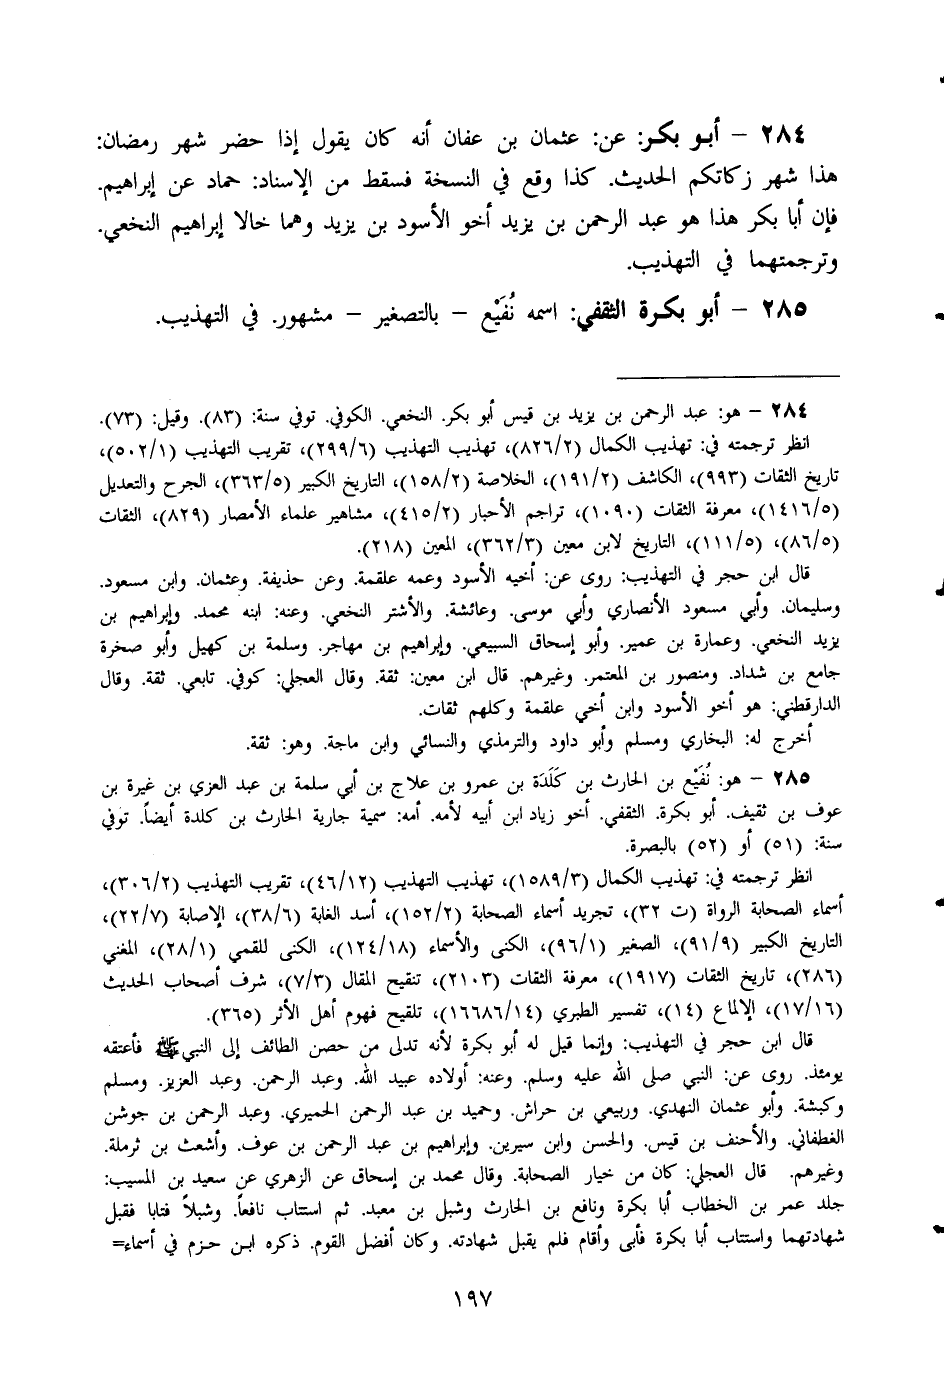 ٢٨٤ – أبو بكر: عن: عثمان بن عفان أنه كان يقول إذا حضر شهر رمضان:
هذا شهر زكاتكم الحديث. كذا وقع في النسخة فسقط من الإسناد: حماد عن إبراهيم.
فإن أبا بكر هذا هو عبد الرحمن بن يزيد أخو الأسود بن يزيد وهما خالا إبراهيم النخعي.
وترجمتهما في التهذيب.
٢٨٥ – أبو بكرة الثقفي: اسمه نُفَيْع – بالتصغير – مشهور. في التهذيب.
٢٨٤ – هو: عبد الرحمن بن يزيد بن قيس أبو بكر. النخعي. الكوفي. توفي سنة: (٨٣). وقيل: (٧٣).
انظر ترجمته في: تهذيب الكمال (٨٢٦/٢)، تهذيب التهذيب (٢٩٩/٦)، تقريب التهذيب (٥٠٢/١)،
تاريخ الثقات (٩٩٣)، الكاشف (١٩١/٢)، الخلاصة (١٥٨/٢)، التاريخ الكبير (٣٦٣/٥)، الجرح والتعديل
(١٤١٦/٥)، معرفة الثقات (١٠٩٠)، تراجم الأحبار (٤١٥/٢)، مشاهير علماء الأمصار (٨٢٩)، الثقات
(٨٦/٥)، (١١١/٥)، التاريخ لابن معين (٣٦٢/٣)، المعين (٢١٨).
قال ابن حجر في التهذيب: روى عن: أخيه الأسود وعمه علقمة. وعن حذيفة. وعثمان. وابن مسعود.
وسليمان. وأبي مسعود الأنصاري وأبي موسى. وعائشة. والأشتر النخعي. وعنه: ابنه محمد. وإبراهيم بن
يزيد النخعي. وعمارة بن عمير. وأبو إسحاق السبيعي. وإبراهيم بن مهاجر. وسلمة بن كهيل وأبو صخرة
جامع بن شداد. ومنصور بن المعتمر. وغيرهم. قال ابن معين: ثقة. وقال العجلي: كوفي. تابعي. ثقة. وقال
الدارقطني: هو أخو الأسود وابن أخي علقمة وكلهم ثقات.
أخرج له: البخاري ومسلم وأبو داود والترمذي والنسائي وابن ماجة. وهو: ثقة.
٢٨٥ – هو: نُفَيْع بن الحارث بن كَلَدَة بن عمرو بن علاج بن أبي سلمة بن عبد العزي بن غيرة بن
عوف بن ثقيف. أبو بكرة. الثقفي. أخو زياد ابن أبيه لأمه. أمه: سمية جارية الحارث بن كلدة أيضاً. توفي
سنة: (٥١) أو (٥٢) بالبصرة.
انظر ترجمته في: تهذيب الكمال (١٥٨٩/٣)، تهذيب التهذيب (٤٦/١٢)، تقريب التهذيب (٣٠٦/٢)،
أسماء الصحابة الرواة (ت ٣٢)، تجريد أسماء الصحابة (١٥٢/٢)، أسد الغابة (٣٨/٦)، الإصابة (٢٢/٧)،
التاريخ الكبير (٩١/٩)، الصغير (٩٦/١)، الكنى والأسماء (١٢٤/١٨)، الكنى للقمي (٢٨/١)، المغني
(٢٨٦)، تاريخ الثقات (١٩١٧)، معرفة الثقات (٢١٠٣)، تنقيح المقال (٧/٣)، شرف أصحاب الحديث
(١٧/١٦)، الإلماع (١٤)، تفسير الطبري (١٦٦٨٦/١٤)، تلقيح فهوم أهل الأثر (٣٦٥).
قال ابن حجر في التهذيب: وإنما قيل له أبو بكرة لأنه تدلى من حصن الطائف إلى النبي ﷺ فأعتقه
يومئذ. روى عن: النبي صلى الله عليه وسلم. وعنه: أولاده عبيد الله. وعبد الرحمن. وعبد العزيز. ومسلم
وكبشة. وأبو عثمان النهدي. وربيعي بن حراش. وحميد بن عبد الرحمن الحميري. وعبد الرحمن بن جوشن
الغطفاني. والأحنف بن قيس. والحسن وابن سيرين. وإبراهيم بن عبد الرحمن بن عوف. وأشعث بن ثرملة.
وغيرهم. قال العجلي: كان من خيار الصحابة. وقال محمد بن إسحاق عن الزهري عن سعيد بن المسيب:
جلد عمر بن الخطاب أبا بكرة ونافع بن الحارث وشبل بن معبد. ثم استتاب نافعاً. وشبلاً فتابا فقبل
شهادتهما واستتاب أبا بكرة فأبى وأقام فلم يقبل شهادته. وكان أفضل القوم. ذكره ابن حزم في أسماء=
١٩٧